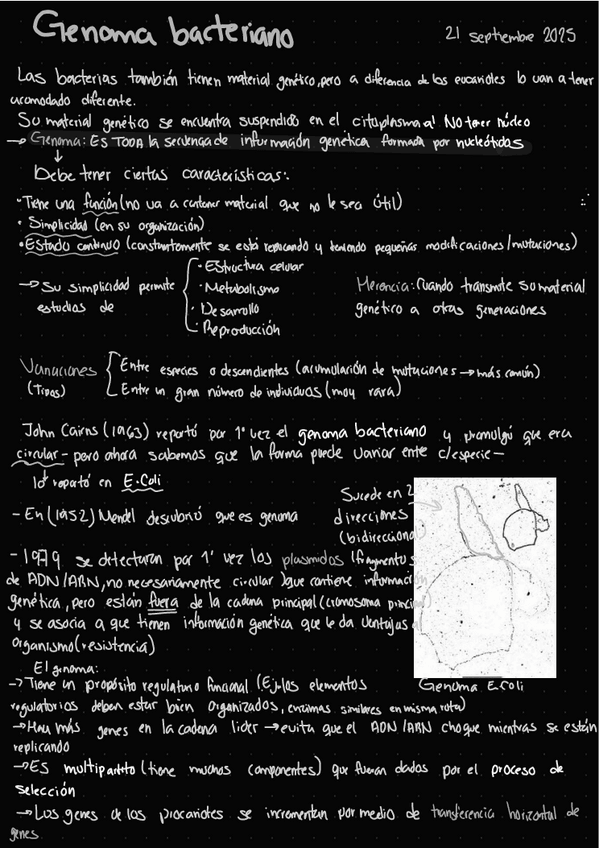 Genoma bacteriano
21 septiembre 2025
Las bacterias también tienen material genético, pero a diferencia de los eucariotes lo van a tener
acomodado diferente.
Su material genético se encuentra suspendido en el citoplasma al NO tener núcleo
→ Genoma: Es TODA la secuencia de información genética formada por nucleótidos
↓
Debe tener ciertas características:
• Tiene una función (no va a contener material que no le sea útil)
• Simplicidad (en su organización)
• Estado continuo (constantemente se está replicando y teniendo pequeñas modificaciones/mutaciones)
→ Su simplicidad permite
estudios de
• Estructura celular
• Metabolismo
• Desarrollo
• Reproducción
Herencia: Cuando transmite su material
genético a otras generaciones
Variaciones
(tipos)
Entre especies o descendientes (acumulación de mutaciones → más común)
Entre un gran número de individuos (muy rara)
John Cairns (1963) reportó por 1° vez el genoma bacteriano y promulgó que era
circular - pero ahora sabemos que la forma puede variar ente c/especie -
lo reportó en E.Coli
- En (1952) Mendel descubrió que es genoma
Sucede en 2
direcciones
- 1979 se detectaron por 1° vez los plasmidos
de ADN/ARN, no necesariamente circular) que contiene
genética, pero están fuera de la cadena principal (cromosoma
y se asocia a que tienen información genética que le da ventajas
organismo (resistencia)
El genoma:
→ Tiene un propósito regulatorio funcional (Ej. los elementos
regulatorios deben estar bien organizados, enzimas similares en misma ruta)
Genoma E.coli
→ Hay más genes en la cadena lider → evita que el ADN/ARN choque mientras se están
replicando
→ Es multipartito (tiene muchos componentes) que fueron dados por el proceso de
selección
→ Los genes de los procariotes se incrementan por medio de transferencia horizontal de
genes